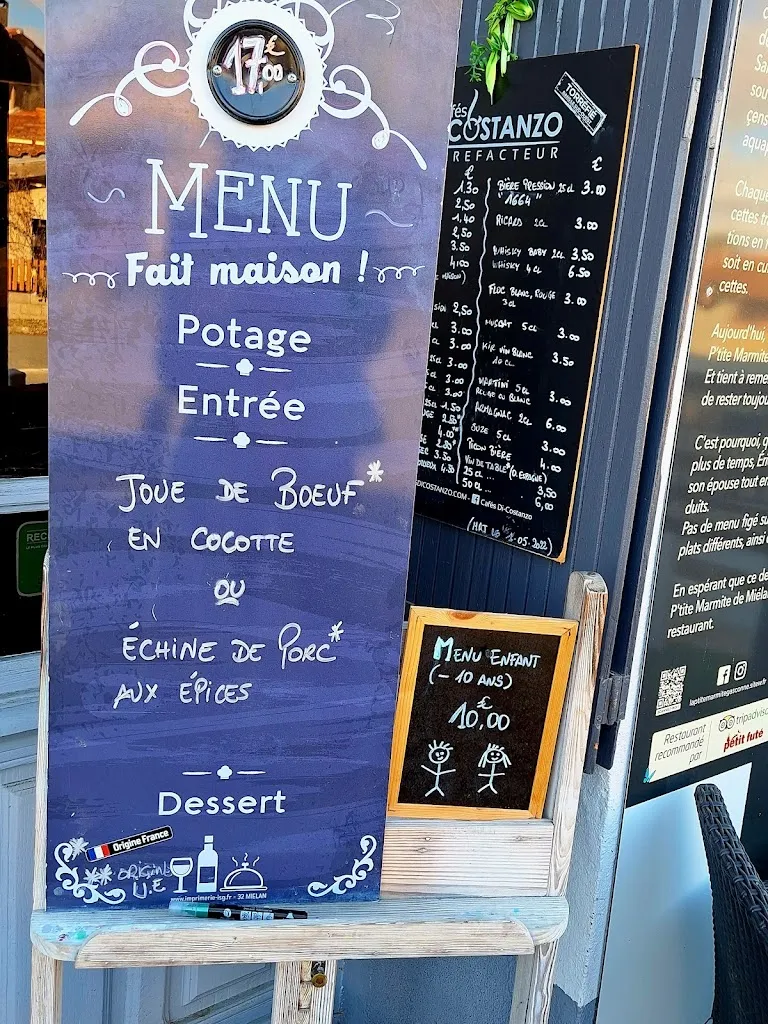 17,00 €
MENU
Fait maison !
Potage
Entrée
JOUE DE BOEUF*
EN COCOTTE
OU
ÉCHINE DE PORC*
AUX ÉPICES
Dessert
* Origine France
** ORIGINE
U.E
www.imprimerie-isg.fr - 32 MIELAN
COSTANZO
REFACTEUR
TORRÉFIÉ
€
€
1.30
2,50
1.40
2,50
3.50
4,00
2,50
3.00
3.00
3.00
3.00
3.00
1.50
2.50
4.00
2.50
3.50
4.50
BIÈRE PRESSION 25 cl 3.00
"1664"
RICARD 2cl 3.00
WHISKY BABY 2cl 3,50
WHISKY 4cl 6.50
FLOC BLANC, ROUGE 3.00
3cl
MUSCAT 5cl 3.00
KIR VIN BLANC 3.50
10 cl
MARTINI 5cl
ROUGE OU BLANC 3.00
ARMAGNAC 2cl 6.00
SUZE 5cl 3.00
PICON BIÈRE 4.00
VIN DE TABLE (D. ESPAGNE)
25 cl ... 3,50
50 cl ... 6,00
DICOSTANZO.COM - Cafés Di-Costanzo
MENU ENFANT
(- 10 ANS)
10,00 €
Chaque
cettes tra
tions en
soit en cu
cettes.
Aujourd'hui,
P'tite Marmite
Et tient à reme
de rester toujou
C'est pourquoi, q
plus de temps, Ém
son épouse tout en
duits.
Pas de menu figé su
plats différents, ainsi
En espérant que ce de
P'tite Marmite de Miélan
restaurant.
laptitemarmitegasconne.sitew.fr
Restaurant
recommandé
par
tripadviso
petit futé
REC